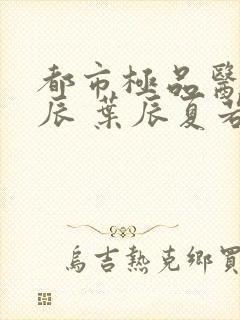 都市極品醫
辰 葉辰夏若
烏吉熱克鄉買